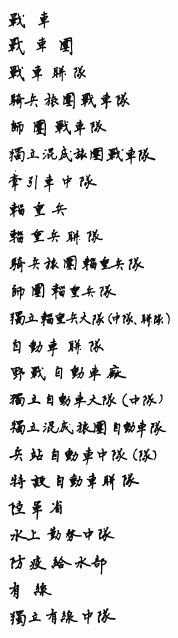 戰車
戰車團
戰車聯隊
騎兵旅團戰車隊
師團戰車隊
獨立混成旅團戰車隊
牽引車中隊
輜重兵
輜重兵聯隊
騎兵旅團輜重兵隊
師團輜重兵隊
獨立輜重兵大隊(中隊、聯隊)
自動車聯隊
野戰自動車廠
獨立自動車大隊(中隊)
獨立混成旅團自動車隊
兵站自動車中隊(隊)
特設自動車聯隊
陸軍省
水上勤務中隊
防疫給水部
有線
獨立有線中隊